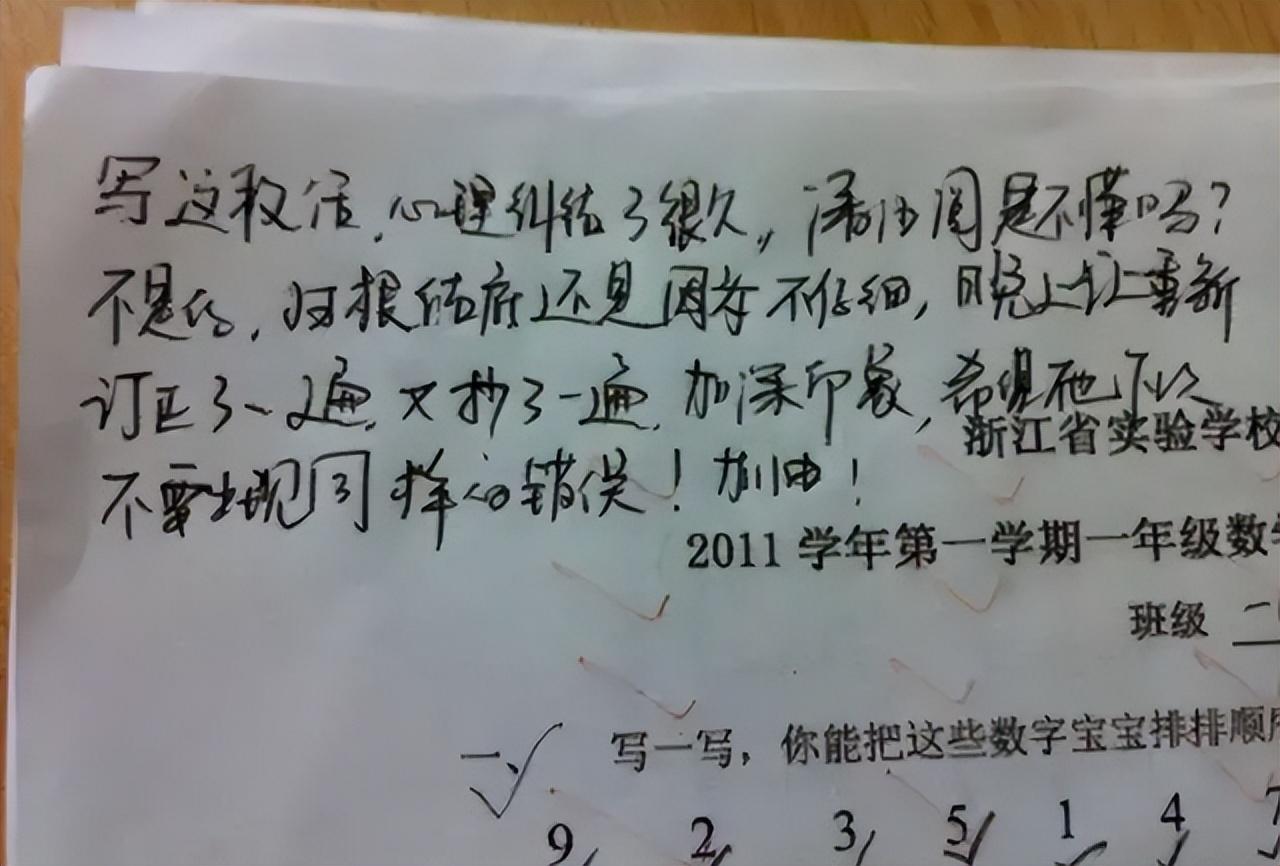 写这段话，心理纠结了很久，潘佳闻是不懂吗？
不是的，归根结底还是因为不仔细，晚上让重新
订正了一遍，又抄了一遍，加深印象，希望他下次
不要出现同样的错误！加油！
浙江省实验学校
2011 学年第一学期一年级数
班级 二
一、 写一写，你能把这些数字宝宝排排顺
9 2 3 5 1 4 7